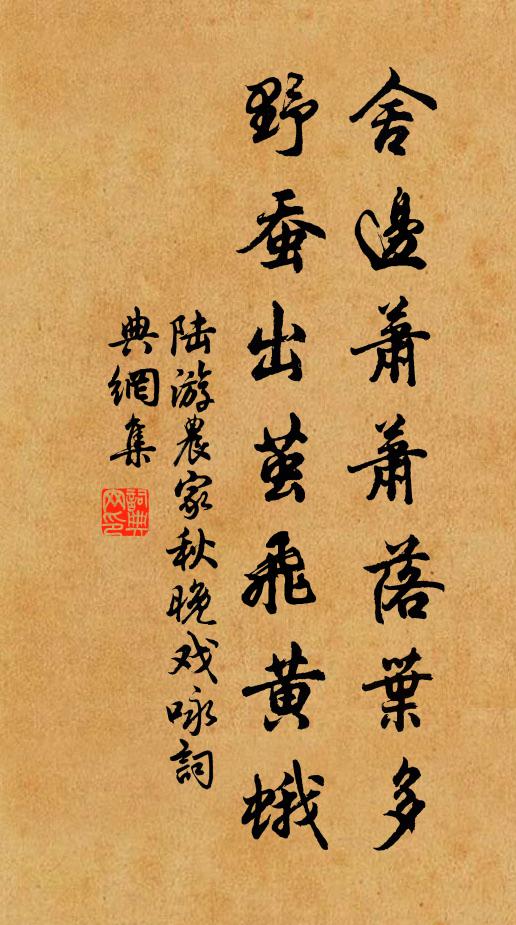 舍邊蕭蕭落葉多
野蚕出茧飛黄蛾
陆游農家秋晚戏咏詞
典網集
詞典
网印